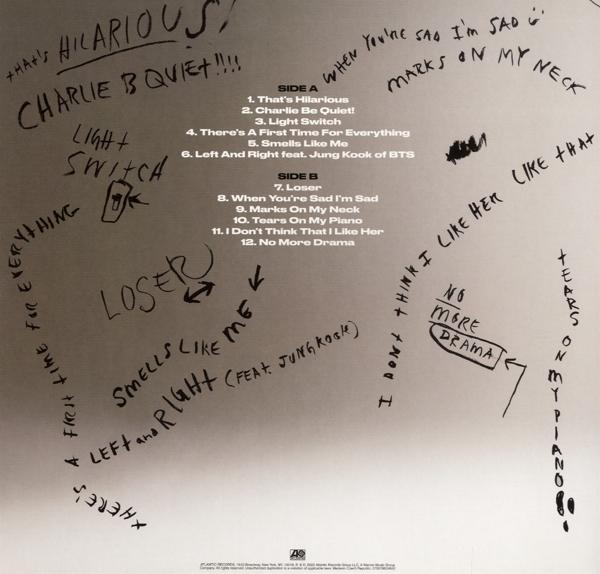 THAT'S HILARIOUS!
CHARLIE B QUIET!!!!
WHEN YOU'RE SAD I'M SAD
MARKS ON MY NECK
SIDE A
1. That's Hilarious
2. Charlie Be Quiet!
3. Light Switch
4. There's A First Time For Everything
5. Smells Like Me
6. Left And Right feat. Jung Kook of BTS
SIDE B
7. Loser
8. When You're Sad I'm Sad
9. Marks On My Neck
10. Tears On My Piano
11. I Don't Think That I Like Her
12. No More Drama
LIGHT
SWITCH
THERE'S A FIRST TIME FOR EVERYTHING
LOSER
SMELLS LIKE ME
LEFT and RIGHT (FEAT. JUNGKOOK)
I DONT THINK I LIKE HER LIKE THAT
NO
MORE
DRAMA
TEARS ON MY PIANO!!
ATLANTIC